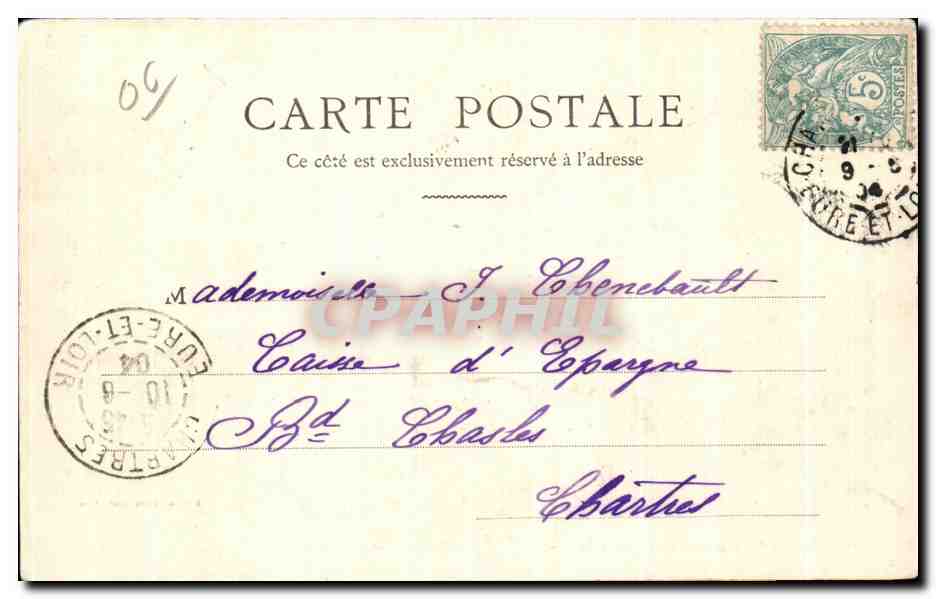 06
CARTE POSTALE
Ce côté est exclusivement réservé à l'adresse
5c
POSTES
CHA
9 - 6
04
EURE-ET-LO
Mademoiselle J. Chenebault
Caisse d'Epargne
Bd Chasles
Chartres
CHARTRES
10 - 6
04
EURE-ET-LOIR
CPAPHIL